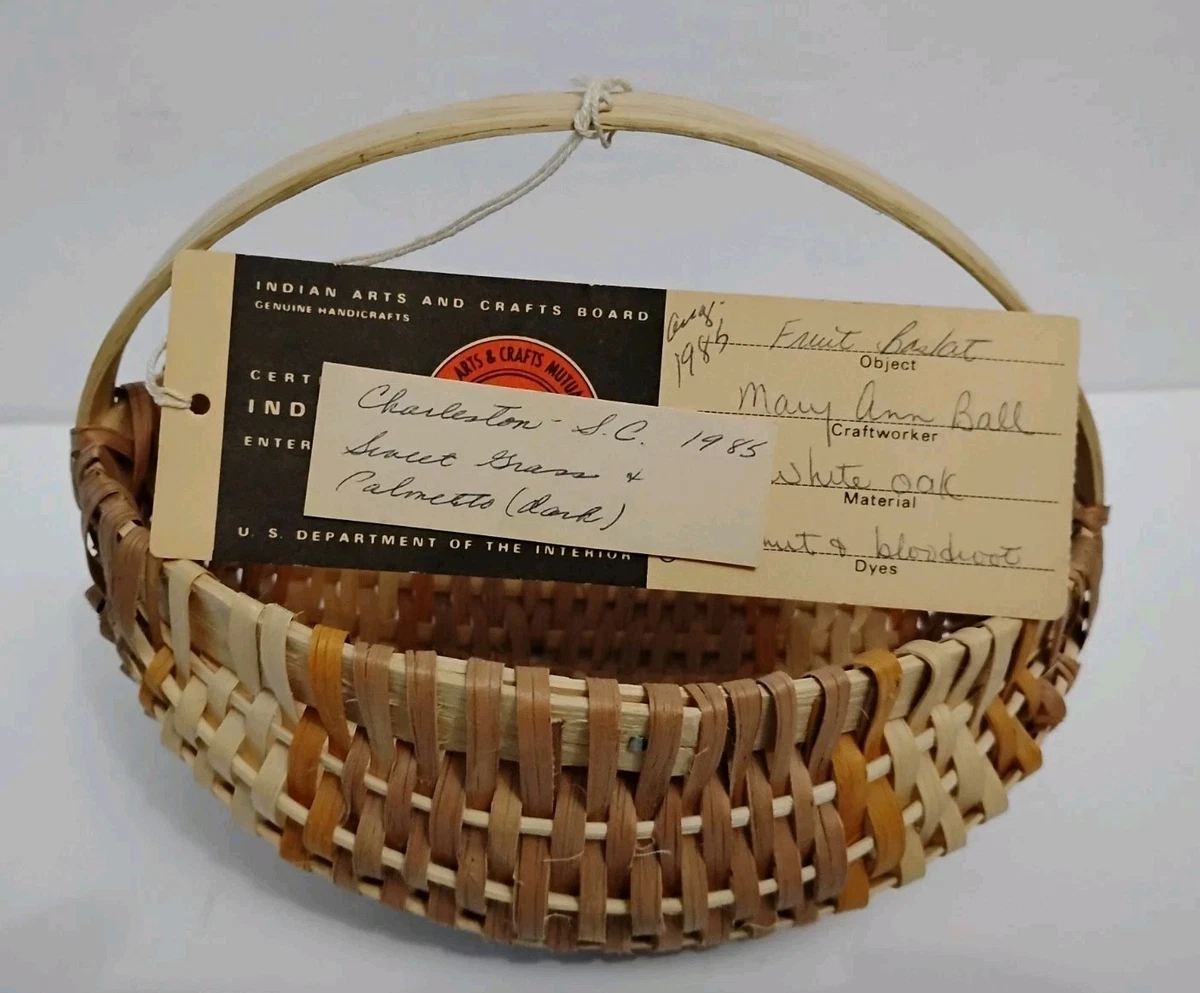 INDIAN ARTS AND CRAFTS BOARD
GENUINE HANDICRAFTS
ARTS & CRAFTS MUTUA
CERT
IND
ENTER
U. S. DEPARTMENT OF THE INTERIOR
Charleston - S.C. 1985
Sweet Grass &
Palmetto (dark)
Aug.
1986
Fruit Basket
Object
Mary Ann Ball
Craftworker
White oak
Material
nut & bloodroot
Dyes